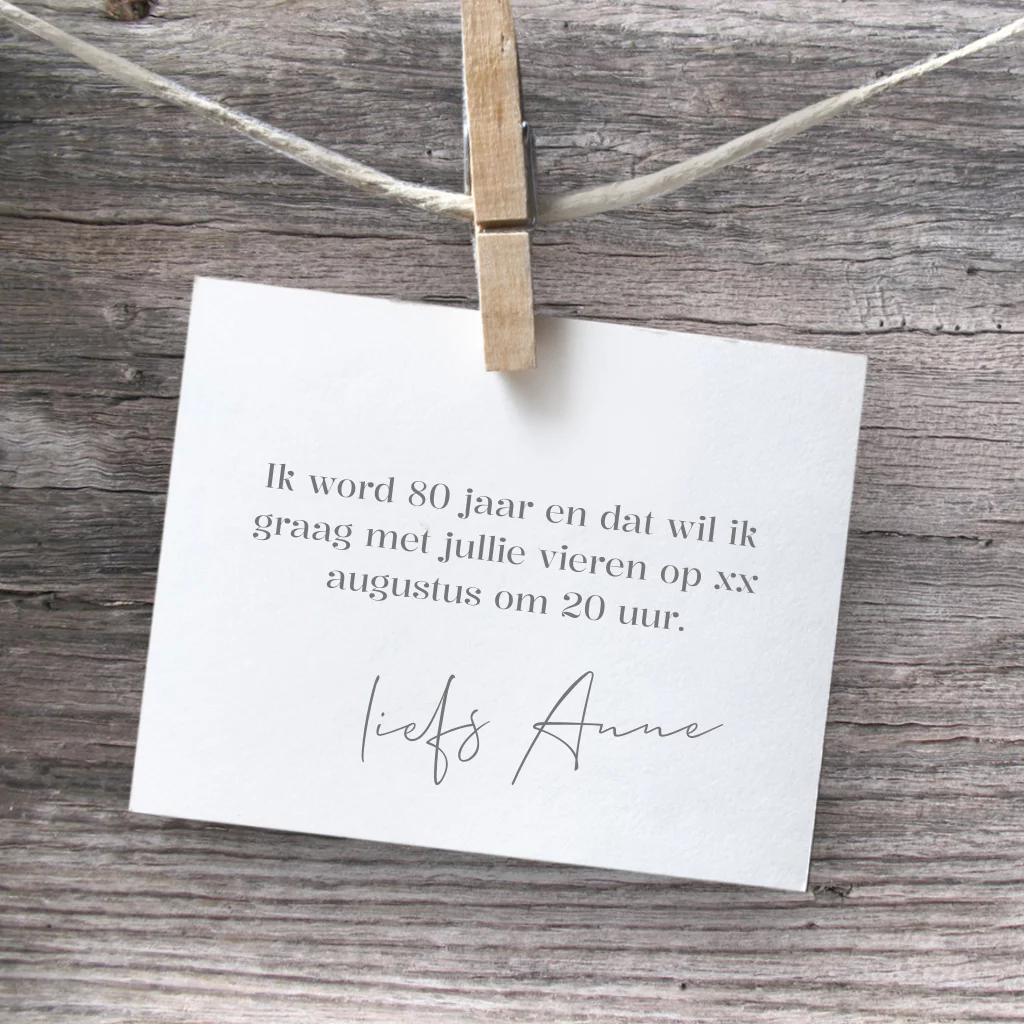 Ik word 80 jaar en dat wil ik
graag met jullie vieren op xx
augustus om 20 uur.
liefs Anne